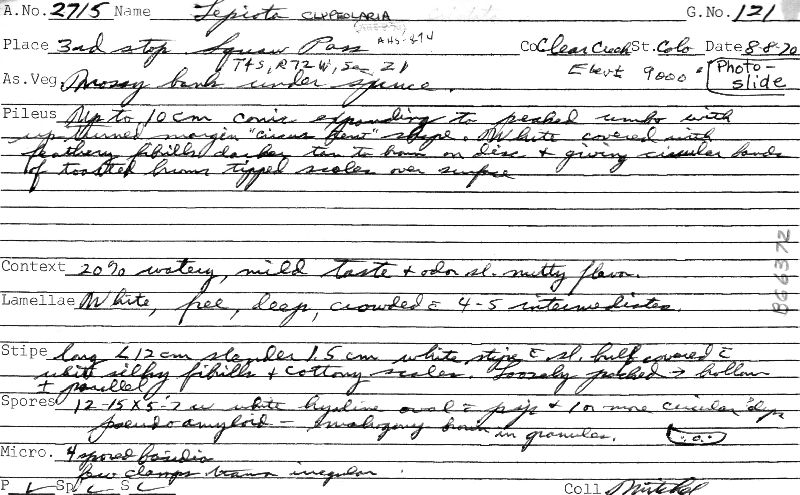 A.No. 2715 Name Lepiota CLYPEOLARIA G.No. 121
AHS-874
Place 3rd stop Squaw Pass Co Clear Creek St. Colo Date 8-8-70
T4S, R72W, Sec 21 Elev. 9000' Photo-slide
As.Veg. Mossy bank under spruce.
Pileus Up to 10 cm conic expanding to peaked umbo with
up turned margin "circus tent" shape. White covered with
feathery fibrills darker tan to brown on disc + giving circular bands
of toasted brown tipped scales over surface
BG6372
Context 20% watery, mild taste + odor sl. nutty flavor.
Lamellae White, free, deep, crowded c̄ 4-5 intermediates.
Stipe long L 12 cm slender 1.5 cm white stipe c̄ sl. bulb covered c̄
white silky fibills + cottony scales. Loosely packed → hollow
+ parallel
Spores 12-15 x 5-7 u white hyaline oval c̄ + 1 or more circular
pseudoamyloid - mahogany brown in granules.
Micro. 4 spored basidia
few clamps trama irregular.
P ✓ Sp ✓ S ✓ Coll. Mitchel